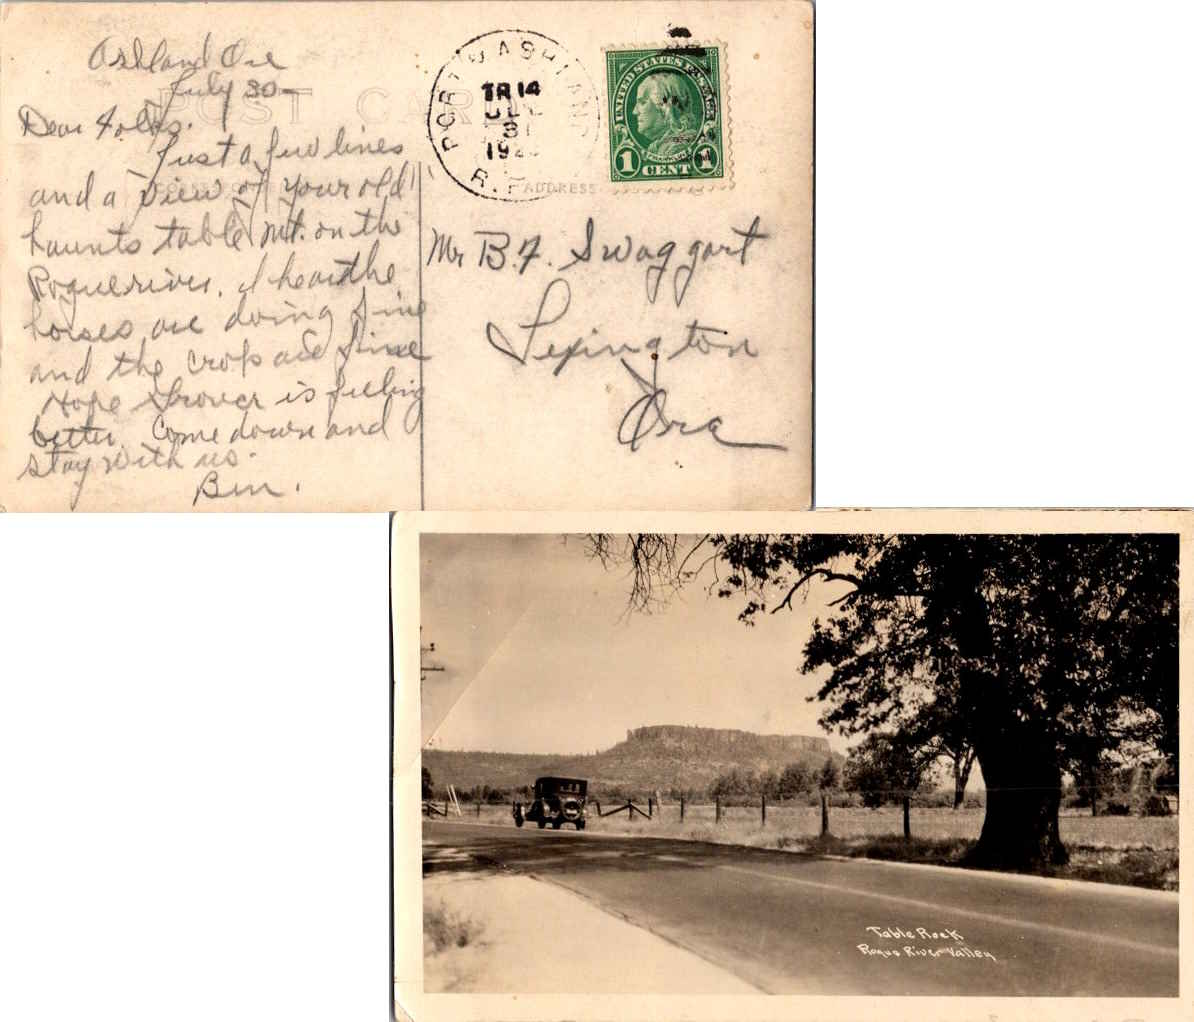 Ashland Ore
July 30—
Dear Folks.
Just a few lines
and a view of your old
haunts table Mt. on the
Rogue river. I hear the
horses are doing fine
and the crops are fine
Hope Grover is feeling
better. Come down and
stay with us.
Ben.
POST CARD
PORT ASHLAND
TR 14
JUL
31
R.P.
UNITED STATES POSTAGE
FRANKLIN
1 CENT 1
ADDRESS
Mr B.F. Swaggart
Lexington
Ore
Table Rock
Rogue River Valley